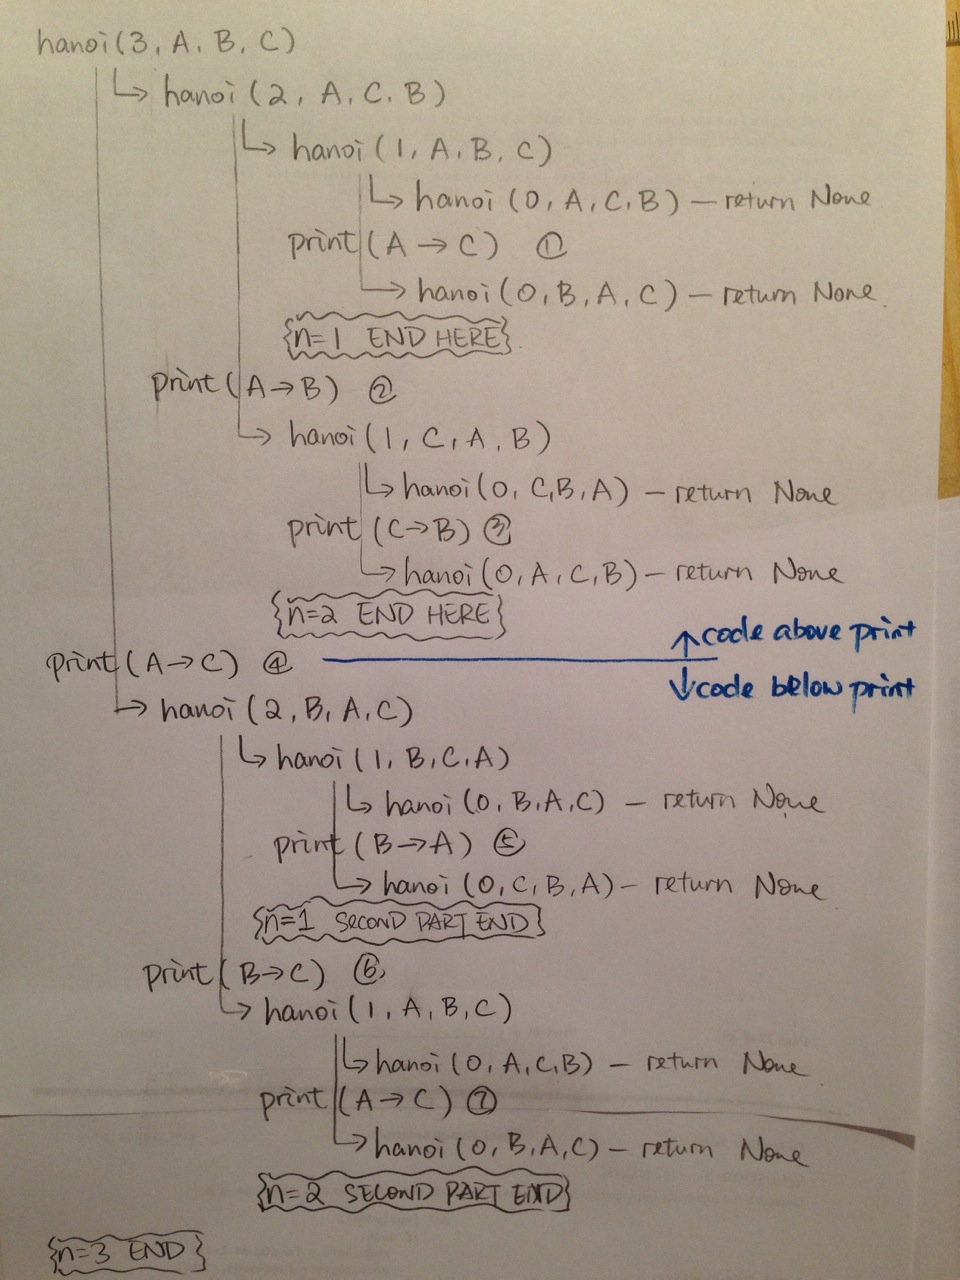 hanoi(3, A, B, C)
↳ hanoi (2, A, C, B)
↳ hanoi (1, A, B, C)
↳ hanoi (0, A, C, B) — return None
print (A → C) ①
↳ hanoi (0, B, A, C) — return None
{n=1 END HERE}
print (A → B) ②
↳ hanoi (1, C, A, B)
↳ hanoi (0, C, B, A) — return None
print (C → B) ③
↳ hanoi (0, A, C, B) — return None
{n=2 END HERE}
↑ code above print
print (A → C) ④
↓ code below print
↳ hanoi (2, B, A, C)
↳ hanoi (1, B, C, A)
↳ hanoi (0, B, A, C) — return None
print (B → A) ⑤
↳ hanoi (0, C, B, A) — return None
{n=1 SECOND PART END}
print (B → C) ⑥
↳ hanoi (1, A, B, C)
↳ hanoi (0, A, C, B) — return None
print (A → C) ⑦
↳ hanoi (0, B, A, C) — return None
{n=2 SECOND PART END}
{n=3 END}